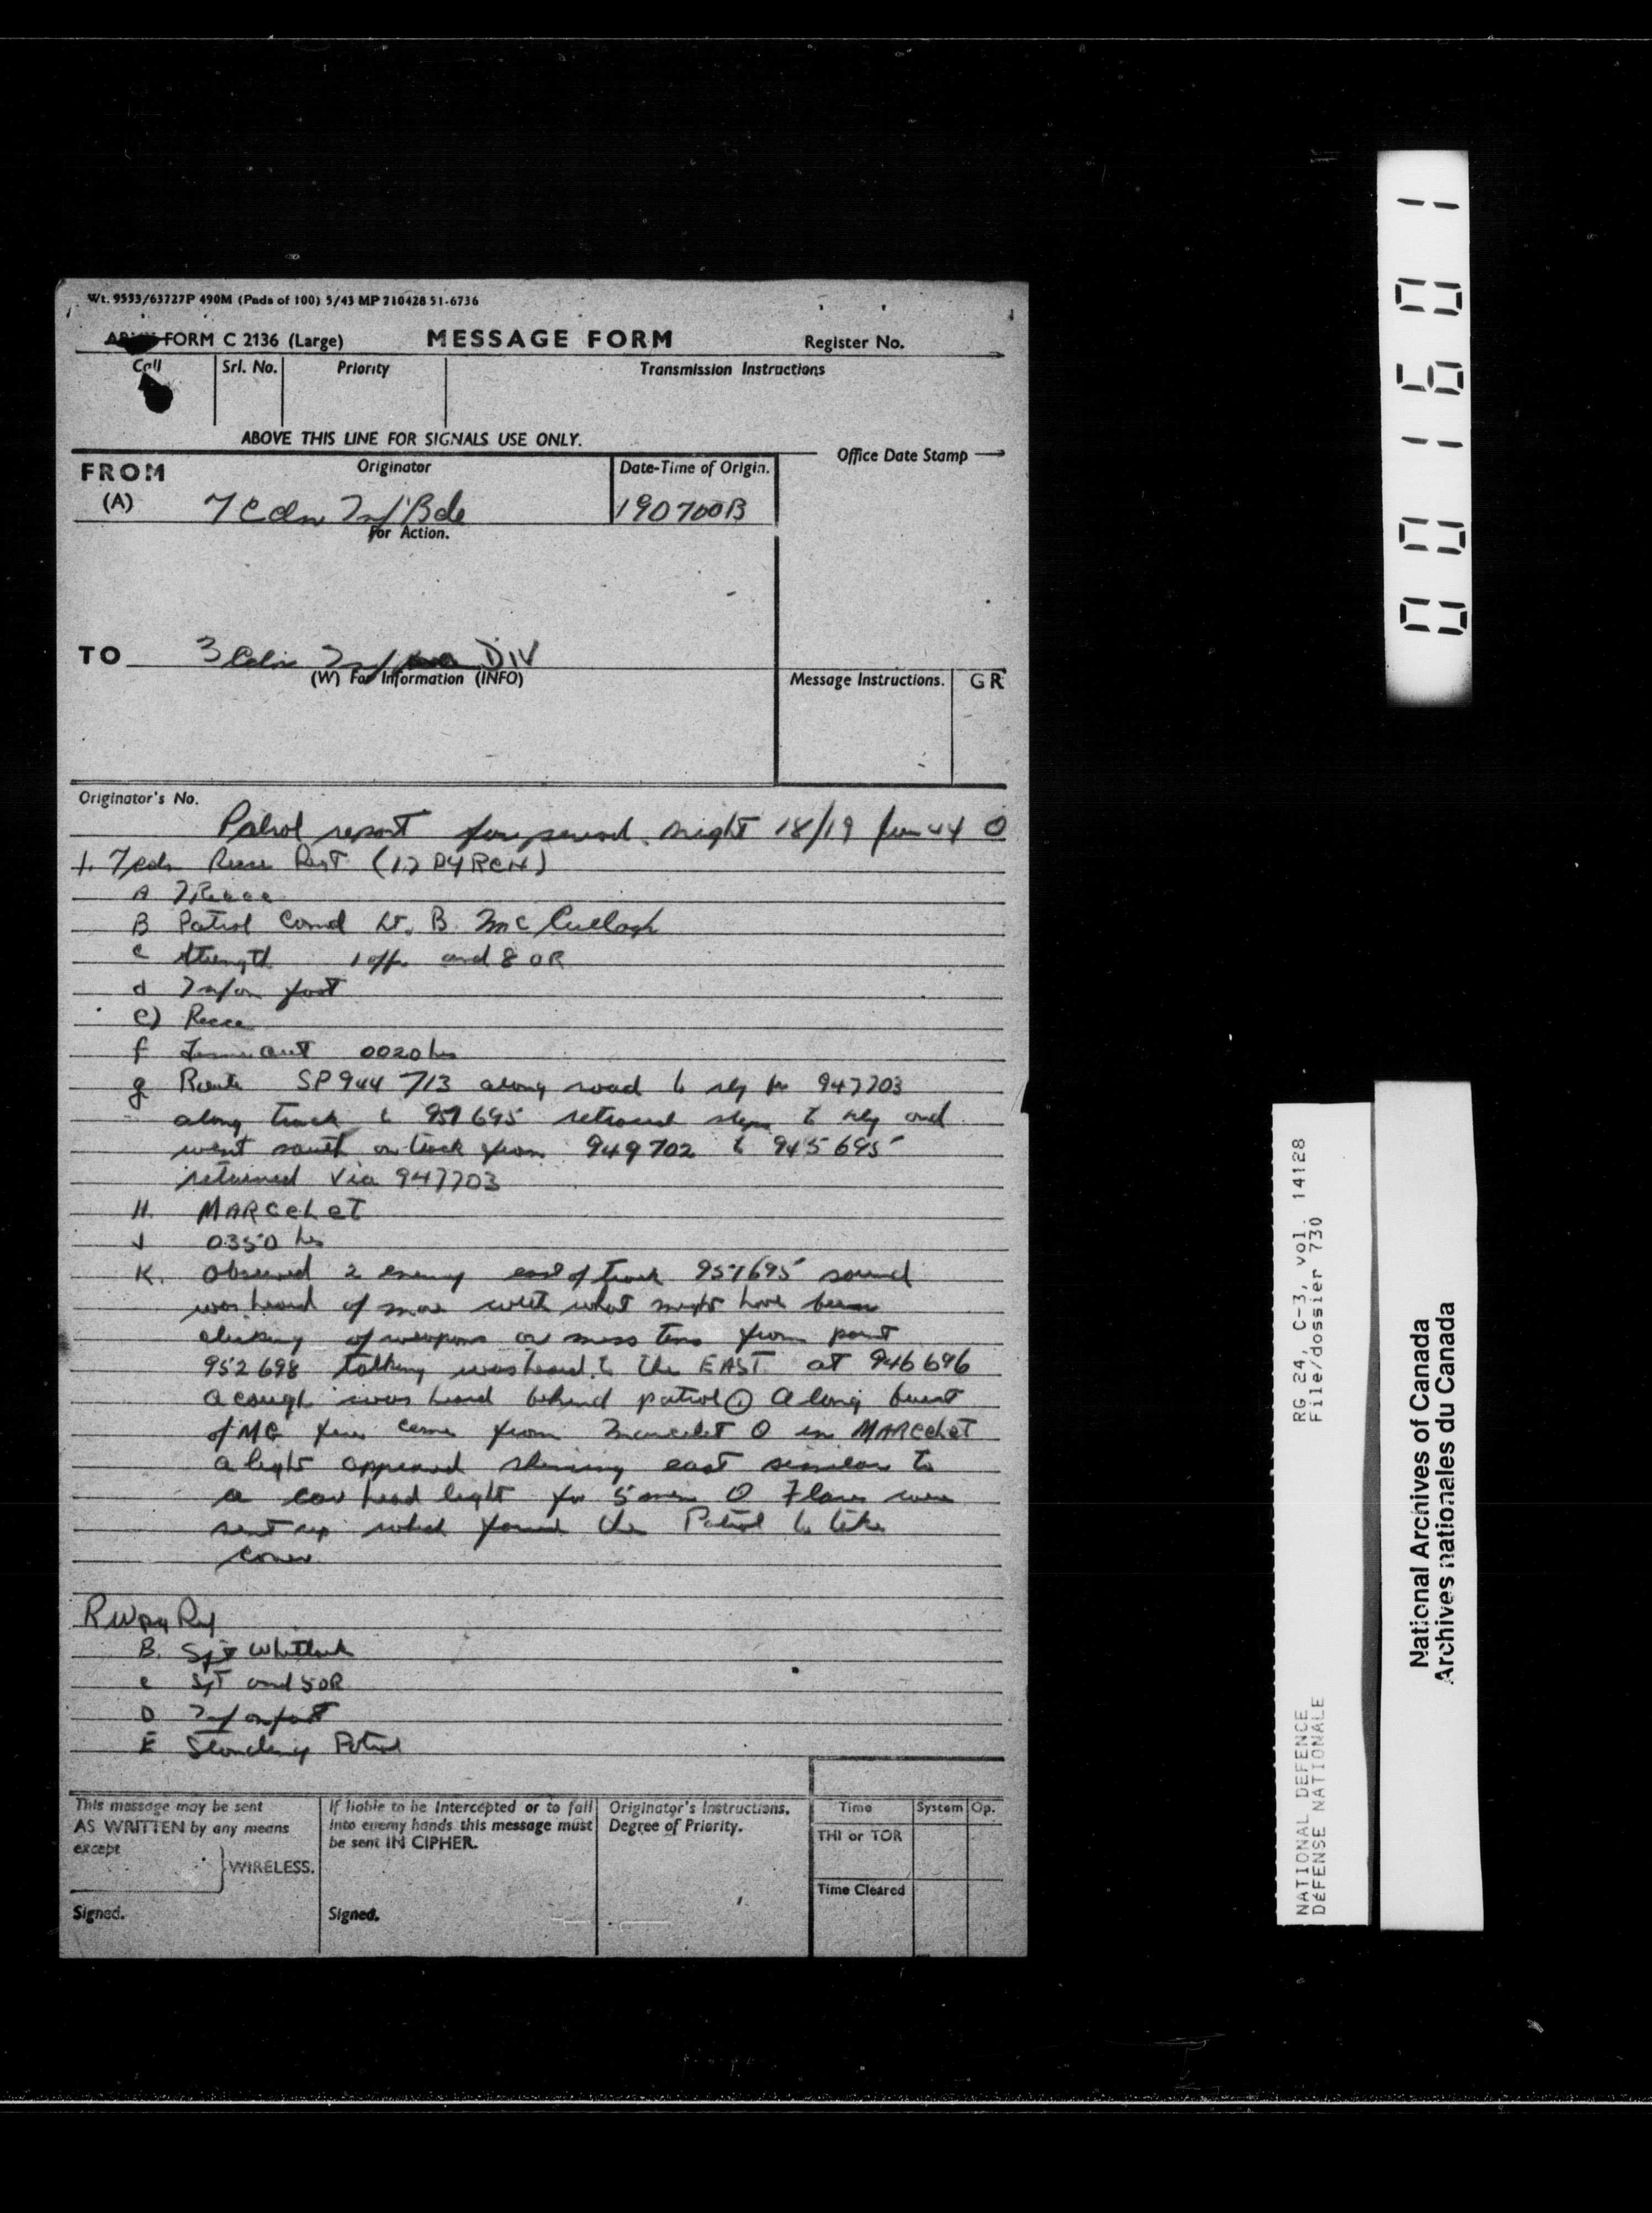 Wt. 9533/63727P 490M (Pads of 100) 5/43 MP 710428 51-6736
ARMY FORM C 2136 (Large) MESSAGE FORM Register No.
Call Srl. No. Priority Transmission Instructions
ABOVE THIS LINE FOR SIGNALS USE ONLY.
FROM (A) Originator Date-Time of Origin. Office Date Stamp
7 Cdn Inf Bde 190700B
For Action.
TO 3 Cdn Inf DIV
(W) For Information (INFO) Message Instructions. GR
Originator's No.
Patrol report for period night 18/19 Jun 44 O
1. 7 Cdn Recce Regt (17 DYRCH)
A 7 Recce
B Patrol Comd Lt. B. McCullogh
C Strength 1 offr and 8 OR
d Inf on foot
e) Recce
f Time out 0020 hrs
g Route SP 944 713 along road to rly br 947703
along track to 951695 retraced steps to rly and
went south on track from 949702 to 945695
returned via 947703
H. MARCELET
J 0350 hrs
K. Observed 2 enemy east of track 951695 sound
was heard of more with what might have been
clinking of weapons or mess tins from point
952698 talking was heard to the EAST. at 946696
a cough was heard behind patrol O A long burst
of MG fire came from Marcelet O in MARCELET
a light appeared shining east similar to
a car head light for 5 min O Flares were
sent up which forced the Patrol to take
cover
R Wpg Rif
B. Sgt Whitlock
c Sgt and 5 OR
D Inf on foot
E Standing Patrol
This message may be sent AS WRITTEN by any means except WIRELESS.
If liable to be intercepted or to fall into enemy hands this message must be sent IN CIPHER.
Originator's Instructions. Degree of Priority.
Time System Op.
THI or TOR
Time Cleared
Signed. Signed.
001601
RG 24, C-3, vol. 14128
File/dossier 730
NATIONAL DEFENCE
DÉFENSE NATIONALE
National Archives of Canada
Archives nationales du Canada